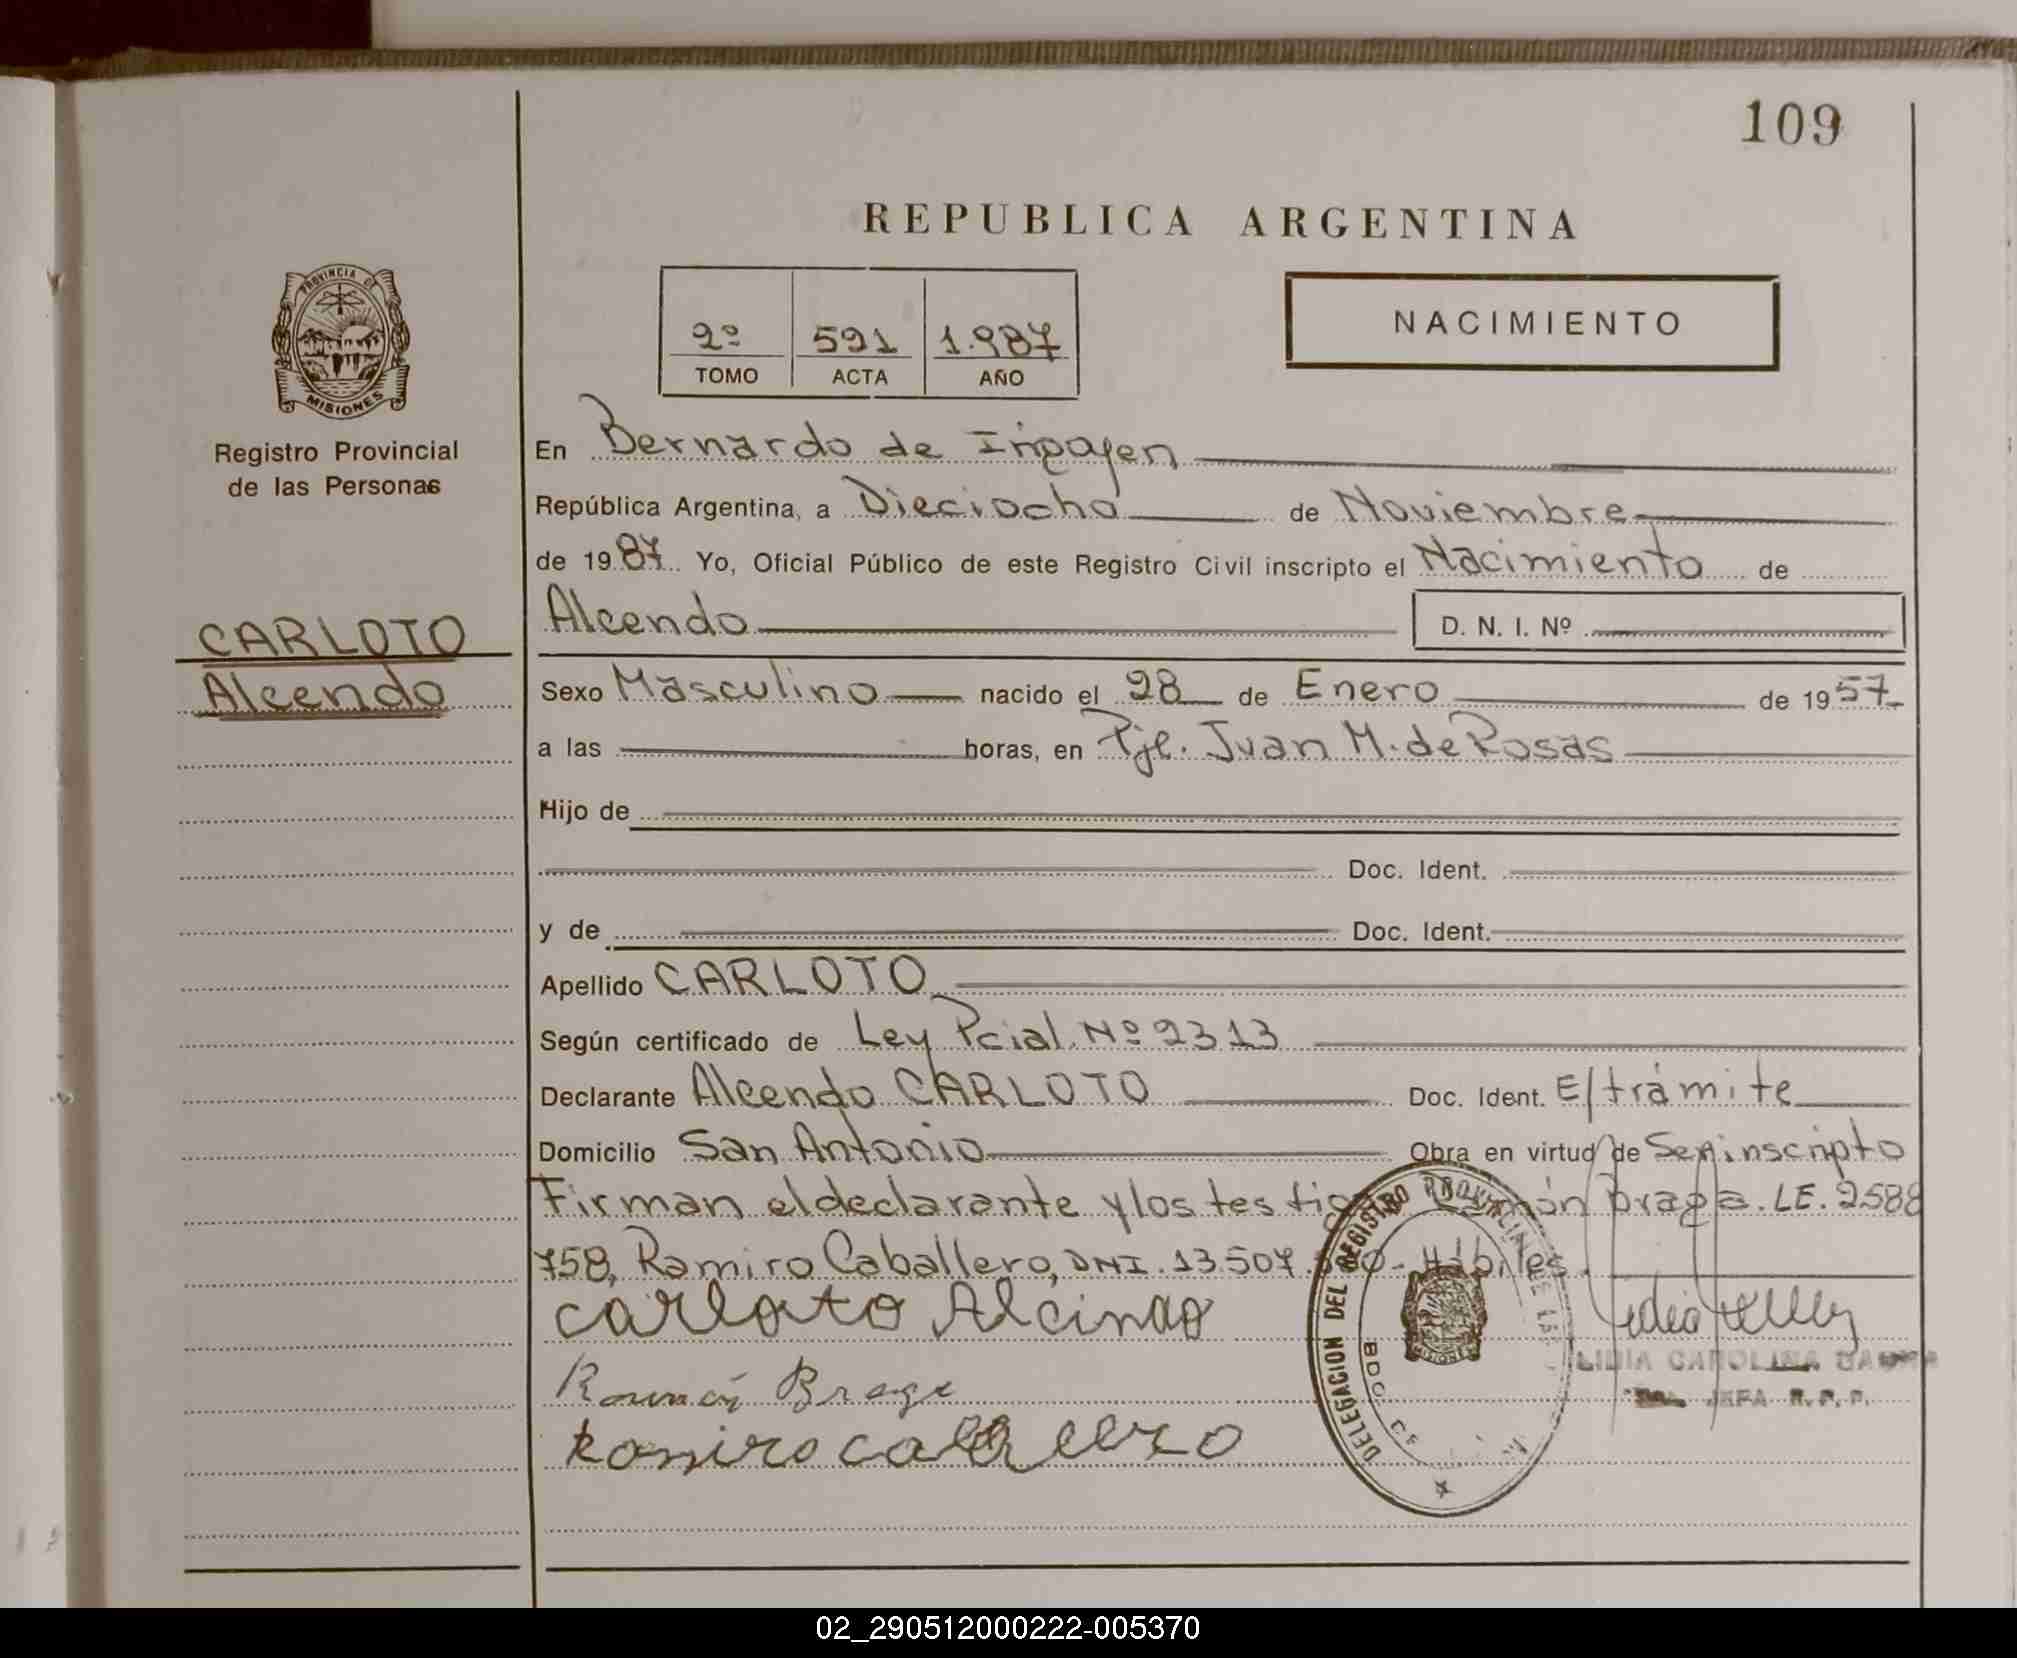 109
REPUBLICA ARGENTINA
PROVINCIA DE
MISIONES
Registro Provincial
de las Personas
2º 591 1.987
TOMO ACTA AÑO
NACIMIENTO
En Bernardo de Irigoyen
República Argentina, a Dieciocho de Noviembre
de 1987 Yo, Oficial Público de este Registro Civil inscripto el Nacimiento de
Alcendo D. N. I. Nº
CARLOTO
Alcendo
Sexo Masculino nacido el 28 de Enero de 1957
a las horas, en Pje. Juan M. de Rosas
Hijo de
Doc. Ident.
y de Doc. Ident.
Apellido CARLOTO
Según certificado de Ley Pcial. Nº 2313
Declarante Alcendo CARLOTO Doc. Ident. E/trámite
Domicilio San Antonio Obra en virtud de Ser inscripto
Firman el declarante y los Braga. LE. 2588
758, Ramiro Caballero, DNI. 13.507. Hábiles.
Carloto Alcindo
Ramón Braga
Ramiro caballero
DELEGACION DEL REGISTRO PROVINCIAL DE LAS
MISIONES
LIDIA CAROLINA
JEFA R. P. P.
02_290512000222-005370